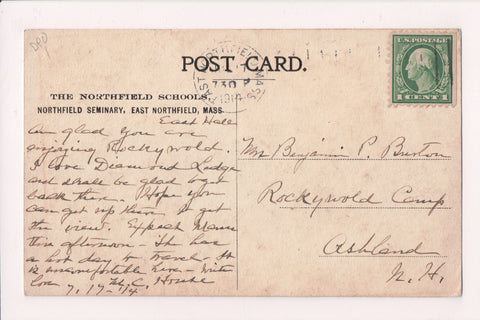 DPO
U.S. POSTAGE
1 CENT 1
EAST NORTHFIELD MASS.
730 P
1914
POST CARD.
THE NORTHFIELD SCHOOLS,
NORTHFIELD SEMINARY, EAST NORTHFIELD, MASS.
East Hall
Am glad you are
enjoying Rockywold.
I love Diamond Ledge
and shall be glad to get
back there. Hope you
can get up there to get
the view. Expect Mama
this afternoon - It has
a hot day to travel. It
is uncomfortable here - with
love
7, 17 - 14
Mrs Benjamin P. Burton
Rockywold Camp
Ashland
N. H.